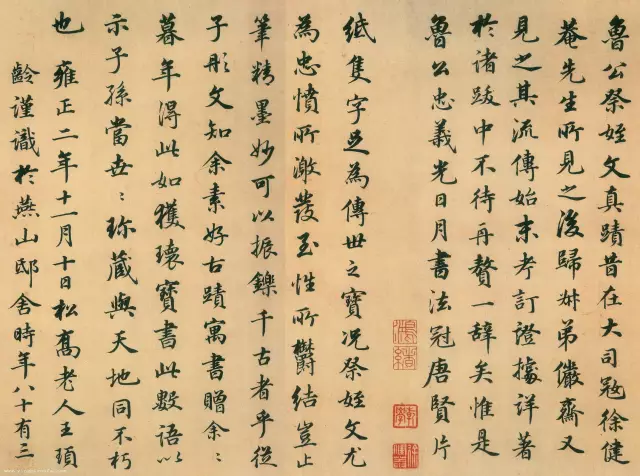 魯公祭姪文真蹟昔在大司寇徐健
菴先生所見之後歸舛弟儼齋又
見之其流傳始末考訂證據詳著
於諸跋中不待再贅一辭矣惟是
魯公忠義光日月書法冠唐賢片
紙隻字足為傳世之寶況祭姪文尤
為忠憤所激發至性所鬱結豈止
筆精墨妙可以振鑠千古者乎從
子彤文知余素好古蹟寓書贈余:
暮年得此如獲瓌寶書此數語以
示子孫當世:珎蔵與天地同不朽
也 雍正二年十一月十日松喬老人王頊
齡謹識於燕山邸舍時年八十有三